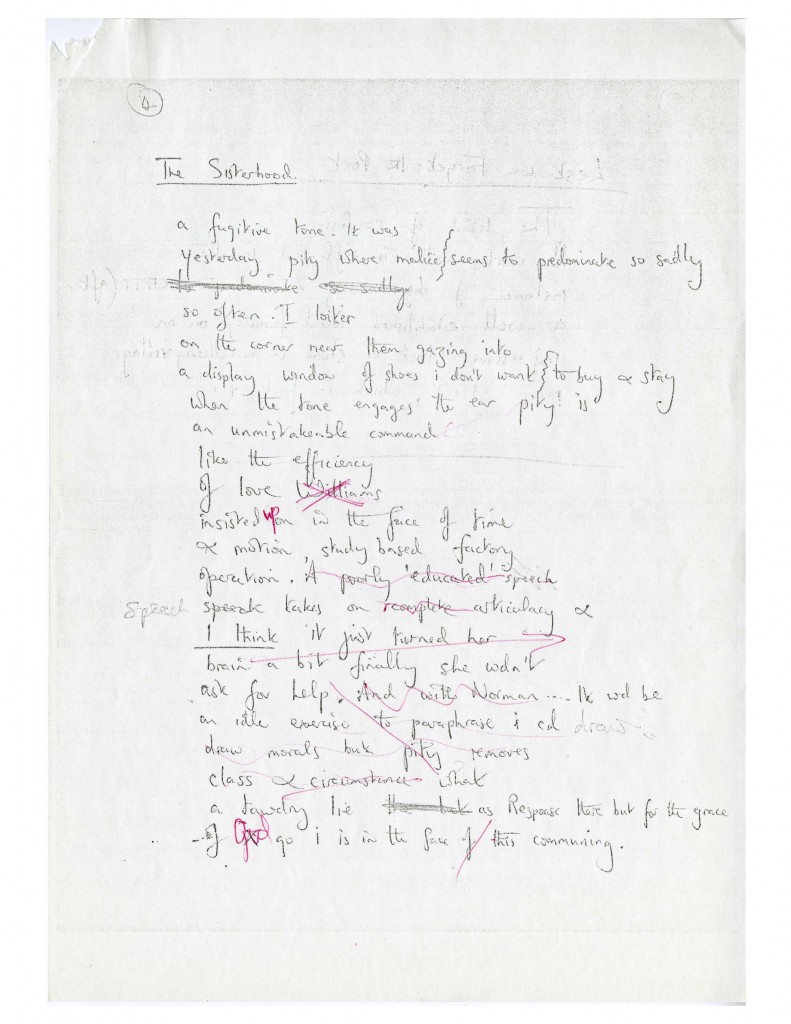 4
The Sisterhood.
a fugitive tone. It was
yesterday pity where malice } seems to predominate so sadly
to predominate so sadly
so often. I loiter
on the corner near them gazing into
a display window of shoes i don't want } to buy & stay
when the tone engages the ear pity! is
an unmistakeable command
like the efficiency
of love Williams
insisted upon in the face of time
& motion, study based factory
operation. A poorly 'educated' speech
Speech speak takes on complete articulacy &
I think it just turned her
brain a bit finally she wdn't
ask for help. And with Norman.... It wd be
an idle exercise to paraphrase i cd draw
draw morals but pity removes
class & circumstance what
a tawdry lie as Response there but for the grace
of God go i is in the face of this communing.